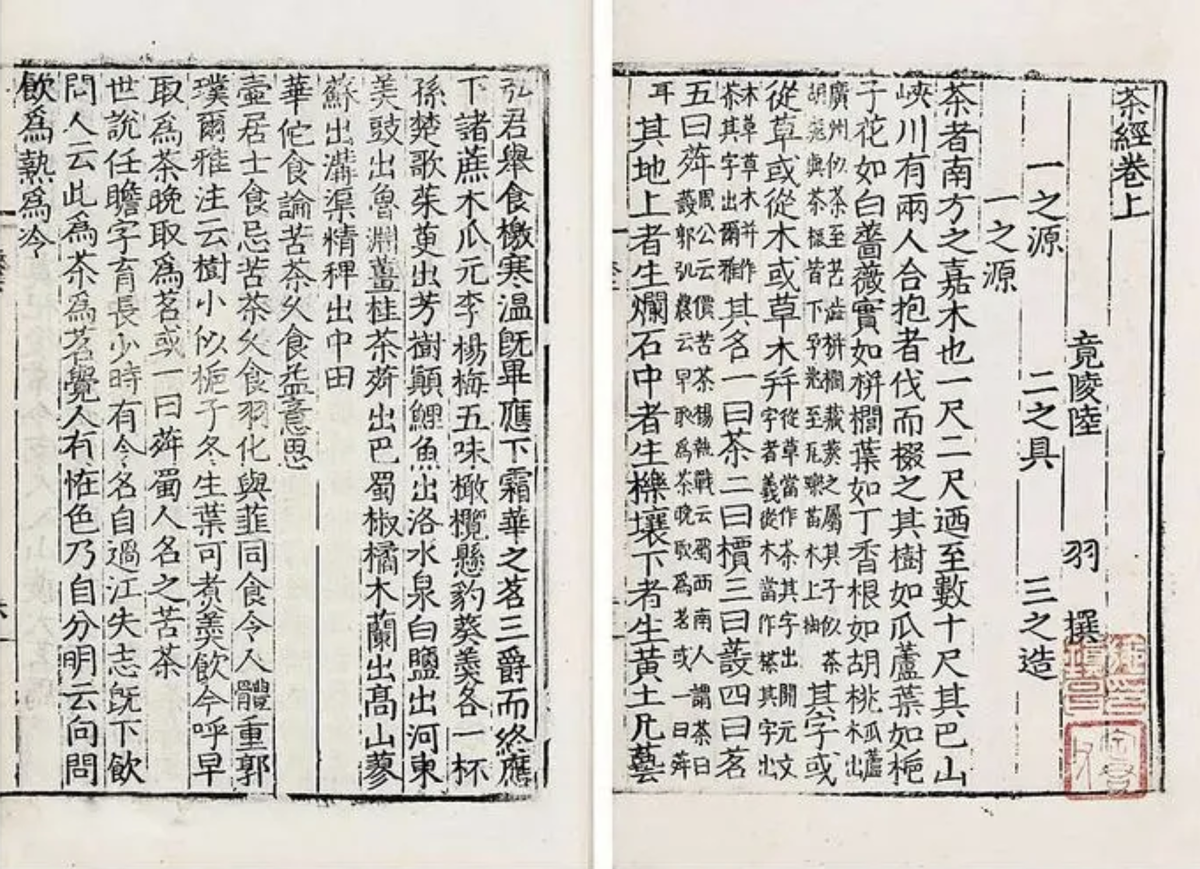 茶經卷上
竟陵陸 羽 撰
一之源 二之具 三之造
一之源
茶者南方之嘉木也一尺二尺迺至數十尺其巴山
峽川有兩人合抱者伐而掇之其樹如瓜蘆葉如梔
子花如白薔薇實如栟櫚葉如丁香根如胡桃瓜蘆木出
廣州似茶至苦澁栟櫚藏葵之屬其子似茶胡桃與茶根皆下孕兆至瓦礫苗木上抽其字或
從草或從木或草木幷從草當作茶其字出開元文字者義從木當作搽其字出
本草草木幷作茶其字出爾雅其名一曰茶二曰檟三曰蔎四曰茗
五曰荈周公云檟苦茶楊執戟云蜀西南人謂茶曰蔎郭弘農云早取爲茶晚取爲茗或一曰荈
耳其地上者生爛石中者生櫟壤下者生黃土凡藝
弘君舉食檄寒溫旣畢應下霜華之茗三爵而終應
下諸蔗木瓜元李楊梅五味橄欖懸豹葵羹各一杯
孫楚歌茱萸出芳樹顚鯉魚出洛水泉白鹽出河東
美豉出魯淵薑桂茶荈出巴蜀椒橘木蘭出高山蓼
蘇出溝渠精稗出中田
華佗食論苦茶久食益意思
壷居士食忌苦茶久食羽化與韮同食令人體重郭
璞爾雅注云樹小似梔子冬生葉可煑羹飲今呼早
取爲茶晚取爲茗或一曰荈蜀人名之苦茶
世說任瞻字育長少時有令名自過江失志旣下飲
問人云此爲茶爲茗覺人有恠色乃自分明云向問
飲爲熱爲冷